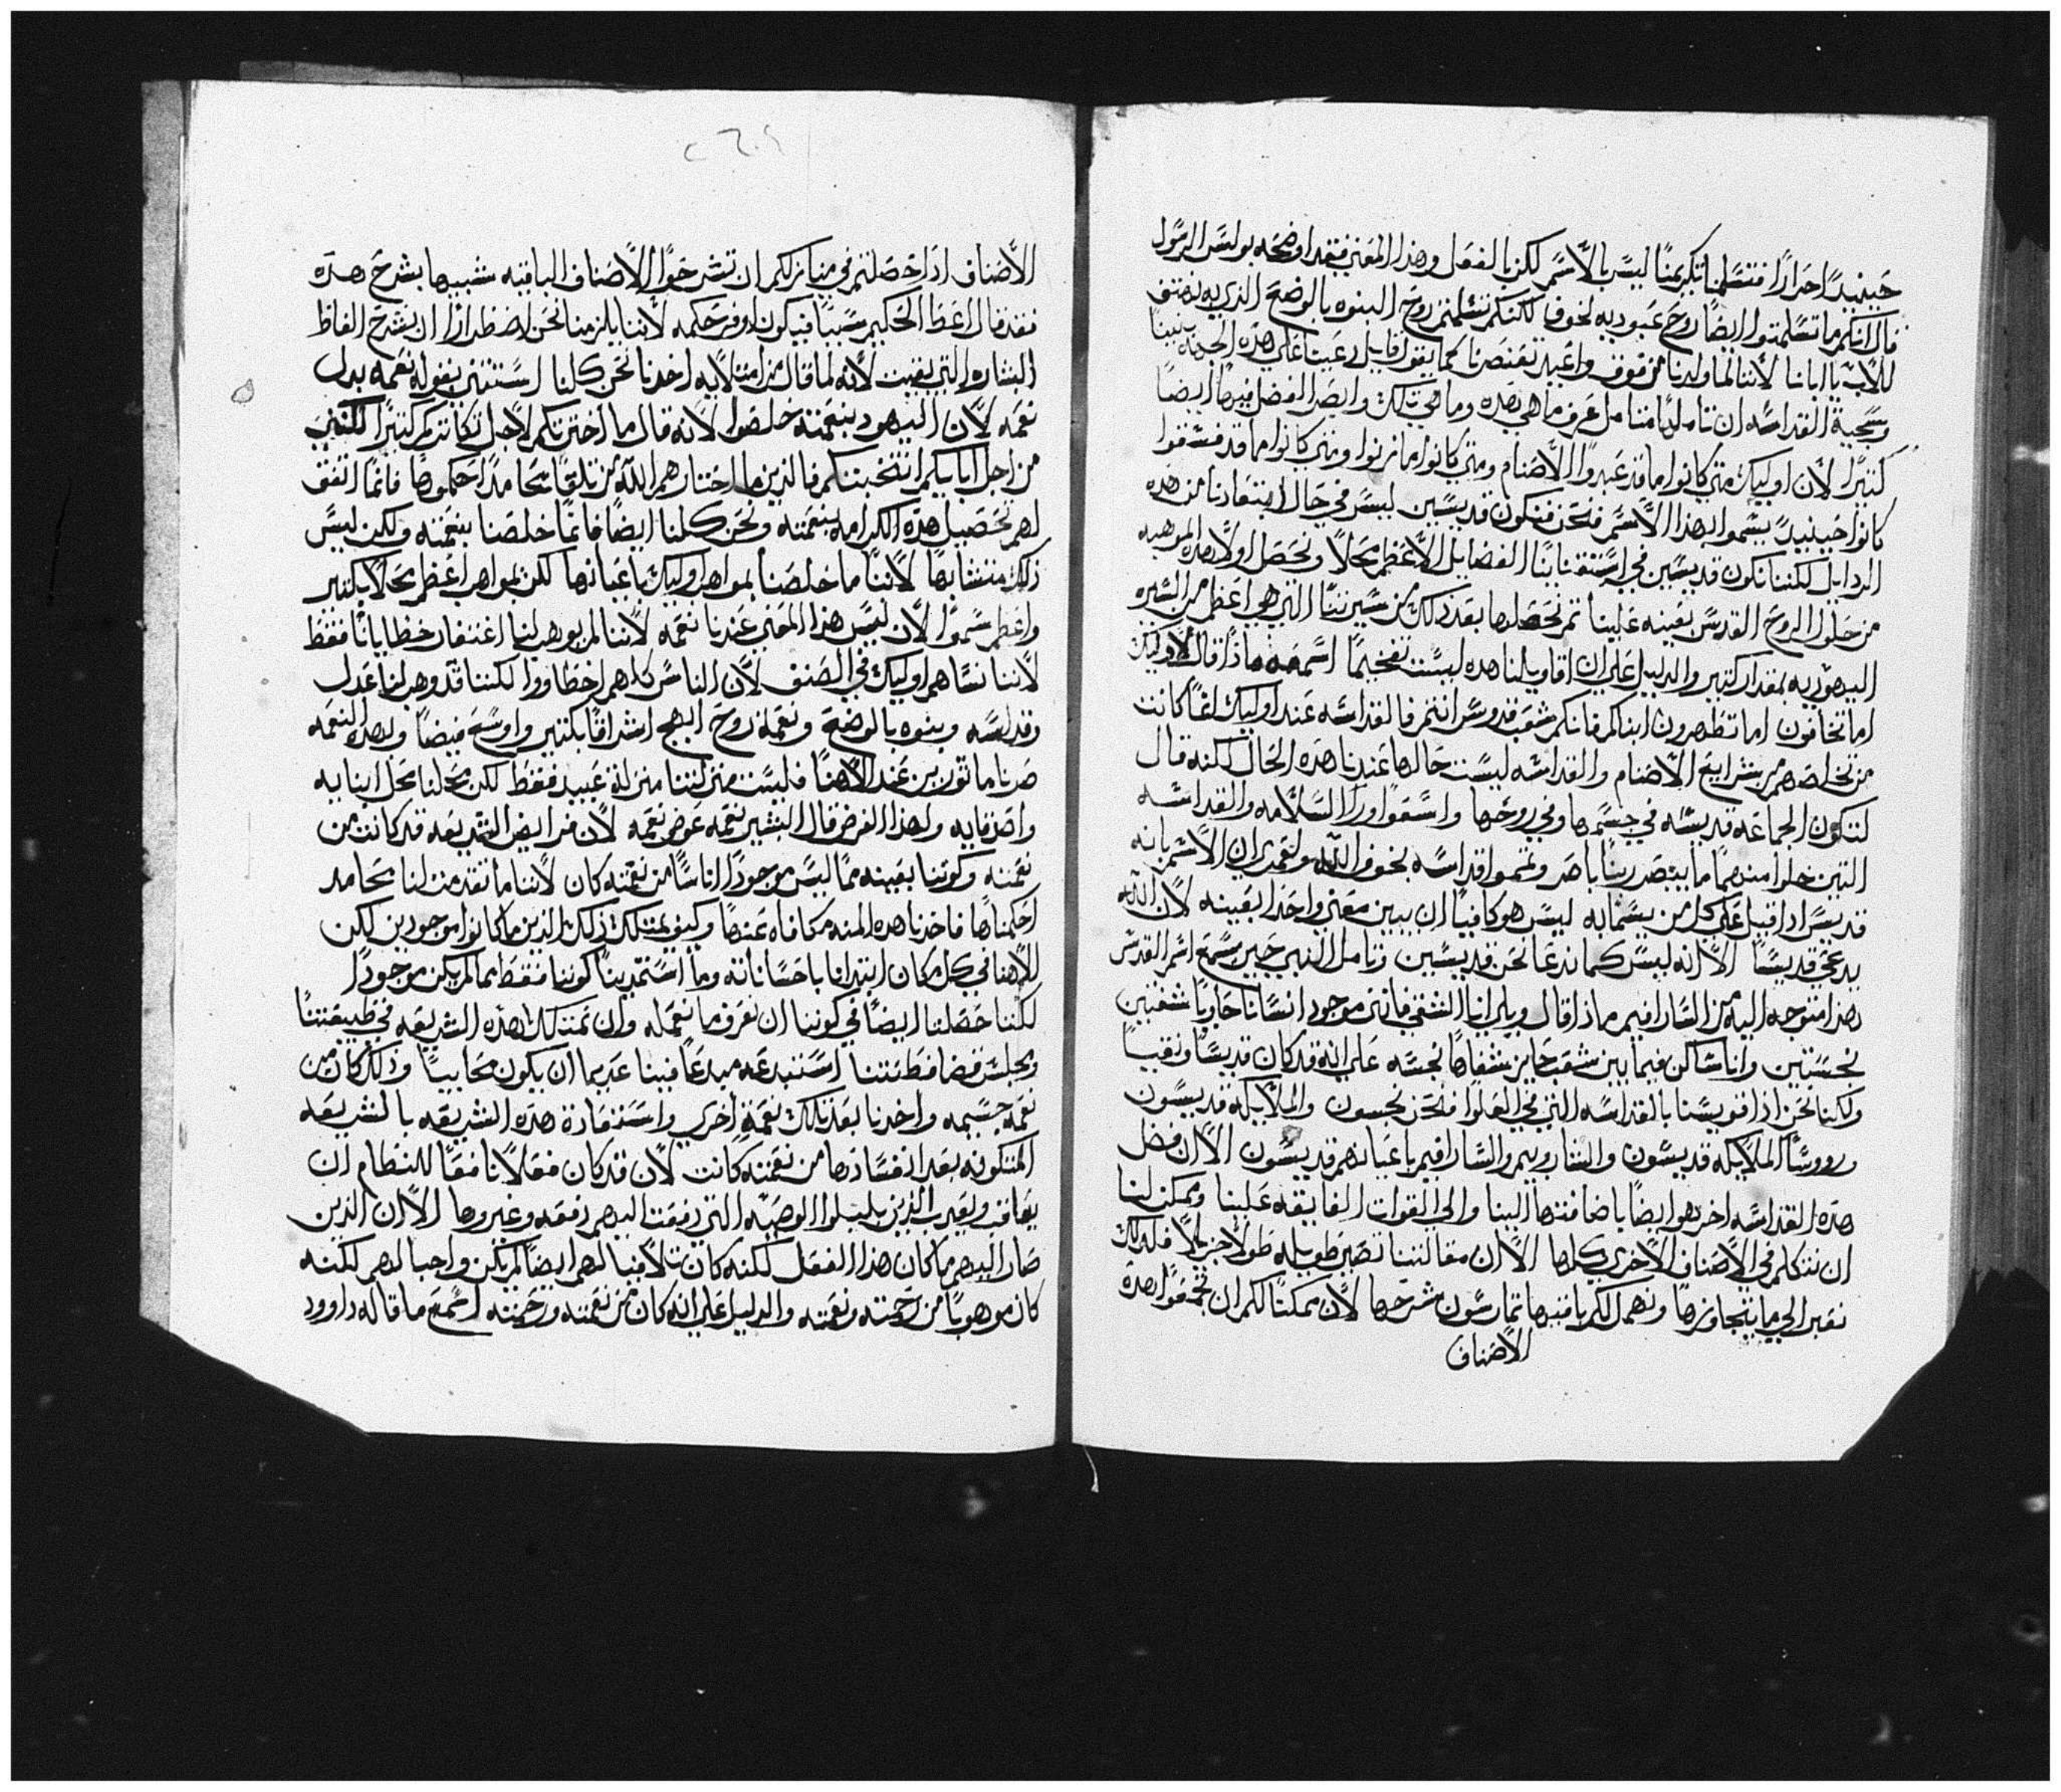 حينيدًا احرارًا فتتسلمنا تكريمنًا ليسً بالاسًم لكن بالفعَل وهذا المعَني فقد اوضحَه بولسً الرسًول
قال انكم ما تسًلمتوا ايضًا روحَ عَبوديه لخوف لكنكم تسًلمتم روحَ البنوه بالوضعَ الذي به نهتف
للاب يا ابانا لاننا لما ولدنا من فوق
وسًجية القداسًه ان تاملها متامل عَرف ما هي هذه وما هي تلك وابصَر الفضل فيهما ايضًا
كثيرًا لان اوليك متي كانوا ما قد عَبدوا الاصَنام ومتي كانوا ما زنوا ومتي كانوا ما قد فسًقوا
كانوا حَينيد يسًموا بهذا الاسًم فنحَن فنكون قديسًين ليسً في حَال ابتعَادنا من هذه
الردايل لكننا نكون قديسًين في استقنايَنا الفضايل الاعَظم محَلاً ونحَصَل اولاً هذه الموهبه
من حَلول الروحَ القدسً بعَينه عَلينا ثم نحَصَلها بعَد ذلك من سًيرتنا التي هي اعَظم من السًيره
اليهوديه بمقدار كثير والدليل عَلي ان اقاويلنا هذه ليسًت تفخيمًا اسًمعَوا ماذا قال لاوليك
اما تخافون اما تطهرون ابناكم فانكم شعَب قدوسً انتم فالقداسًه عَند اوليك انما كانت
من تخلصَهم من شرايعَ الاصَنام والقداسًه ليسًت حَالها عَندنا هذه الحَال لكنه قال
لتكون الجماعَه قديسًه في جسًمها وفي روحَها واسًعَوا ورا السًلامه والقداسًه
التين خلوا منهما ما يبصَر ربنا باصَر وتمموا قداسًه بخوف الله
قديسً اذا قيل عَلي كل من يسًما به ليسً هو كافيًا ان يبين معَني واحَدًا بعَينه لان الله
يدعَي قديسًا الا انه ليسً كما ندعَا نحَن قديسًين وتامل النبي حَين سًمعَ اسًم القدسً
هذا متوجه اليه من السًارافيم ماذا قال ويلي انا الشقي فانني موجود انسًانا حَاويًا شفتين
نجسًتين وانا سًاكن فيما بين شعَب حَايز شفاهًا نجسًه عَلي انه قد كان قديسًا ونقيًا
ولكنا نحَن اذا قويسًنا بالقداسًه التي في العَلو فنحَن نجسون والملايكه قديسًون
وروسًا الملايكه قديسًون والشاروبيم والسًارافيم باعَيانهم قديسًون الا ان فضل
هذه القداسًه اخر هو ايضًا باضافتها الينا والي القوات الفايقه عَلينا وممكن لنا
ان نتكلم في الاصَناف الاخري كلها الا ان مقالتنا تصَير طويله طولاً جزيلاً فلذلك
نعَبر الي ما يتجاوزها ونهمل لكم باقيها تمارسًون شرحَها لان ممكنًا لكم ان تجمعَوا هذه
الاصَناف
الاصَناف اذا حَصَلتم في منازلكم ان تشرحَوا الاصَناف الباقيه شبيهًا بشرحَ هذه
فقد قال اعَط الحَكيم سًببًا فيكون اوفر حَكمه لاننا يلزمنا نحَن اضطرارًا ان نشرحَ الفاظ
البشاره التي بقيت لانه لما قال من امتلايه اخذنا نحَن كلنا اسًتثني بقوله نعَمه بدل
نعَمه لان اليهود بنعَمته خلصَوا لانه قال ما اخترتكم لاجل تكاثركم كثيرًا لكنني
من اجل ابايكم انتخبتكم فالذين ما اختارهم الله من تلقا محَامد احَكموها فانما اتفق
لهم تحَصَيل هذه الكرامه بنعَمته ونحَن كلنا ايضًا فانما خلصَنا بنعَمته ولكن ليسً
ذلك متشابهًا لاننا ما خلصَنا بمواهب اوليك باعَيانها لكن بمواهب اعَظم محَلاً بكثير
واعَظم سًموًا لان ليسً هذا المعَني عَندنا نعَمه لاننا لم يوهب لنا اغتفار خطايانا فقط
لاننا نسًاهم اوليك في الصَنف لان الناسً كلهم اخطاوا لكننا قد وهب لنا عَدل
وقداسًه وبنوه بالوضعَ ونعَمة روحَ ابهج اشراقًا بكثير واوسًعَ فيضًا وبهذه النعَمه
صَرنا ماثورين عَند الاهنا فليسًت منزلتنا منزلة عَبيد فقط لكن محَلنا محَل ابنا به
واصَدقا به ولهذا الغرض قال البشير نعَمه عَوض نعَمه لان فرايض الشريعَه قد كانت من
نعَمته وكوننا بعَينه مما ليسً موجودًا اناسًا من نعَمته كان لاننا ما تقدمت لنا محَامد
احَكمناها فاخذنا هذه المنه مكافاه عَنها وكيف يمتلك ذلك الذين ما كانوا موجودين لكن
الاهنا في كل مكان ابتدانا باحَسًاناته وما اسًتمدينا كوننا فقط بما لم يكن موجودًا
لكننا حَصَلنا ايضًا في كوننا ان نعَرف ما نعَمله وان نمتلك هذه الشريعَه في طبيعَتنا
ومجلسً قضا فطنتنا اسًتبدعَه مبدعًَا فينا عَديما ان يكون محَابيًا وذلك كان من
نعَمه جسًيمه واخذنا بعَد تلك نعَمة اخري واسًتفادة هذه الشريعَه بالشريعَه
المكتوبه بعَد انفسًادها من نعَمته كانت لان قد كان فعَلاً نافعًَا للنظام ان
يعَاقب ويعَذب الذين يبليلوا الوصَيه التي دفعَت اليهم دفعَه وغيروها الا ان الذين
صَار اليهم ما كان هذا الفعَل لكنه كان تلافيًا لهم ايضًا لم يكن واجبا لهم لكنه
كان موهوبًا من رحَمته ونعَمته والدليل عَلي انه كان من نعَمته ورحَمته اسًمعَ ما قاله داوود